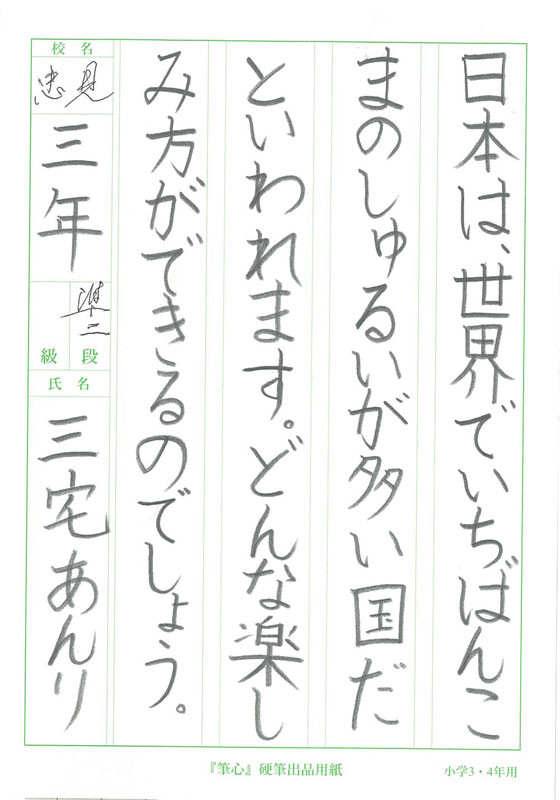 日本は、世界でいちばんこ
まのしゅるいが多い国だ
といわれます。どんな楽し
み方ができるのでしょう。
校名
忠見
三年
準二
段
級
氏名
三宅あんり
『筆心』硬筆出品用紙
小学3・4年用